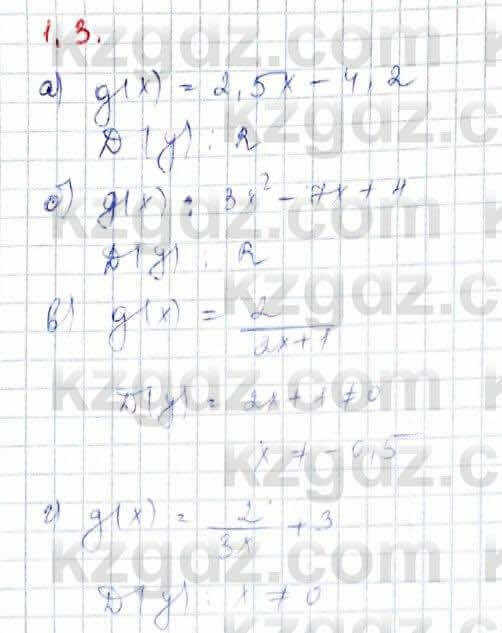 1.3.
а) g(x) = 2,5x - 4,2
D(y): R
б) g(x): 3x² - 7x + 4
D(y): R
в) g(x) = 2/(2x+1)
D(y) = 2x + 1 ≠ 0
x ≠ -0,5
г) g(x) = 2/(3x) + 3
D(y): x ≠ 0
kzgdz.com